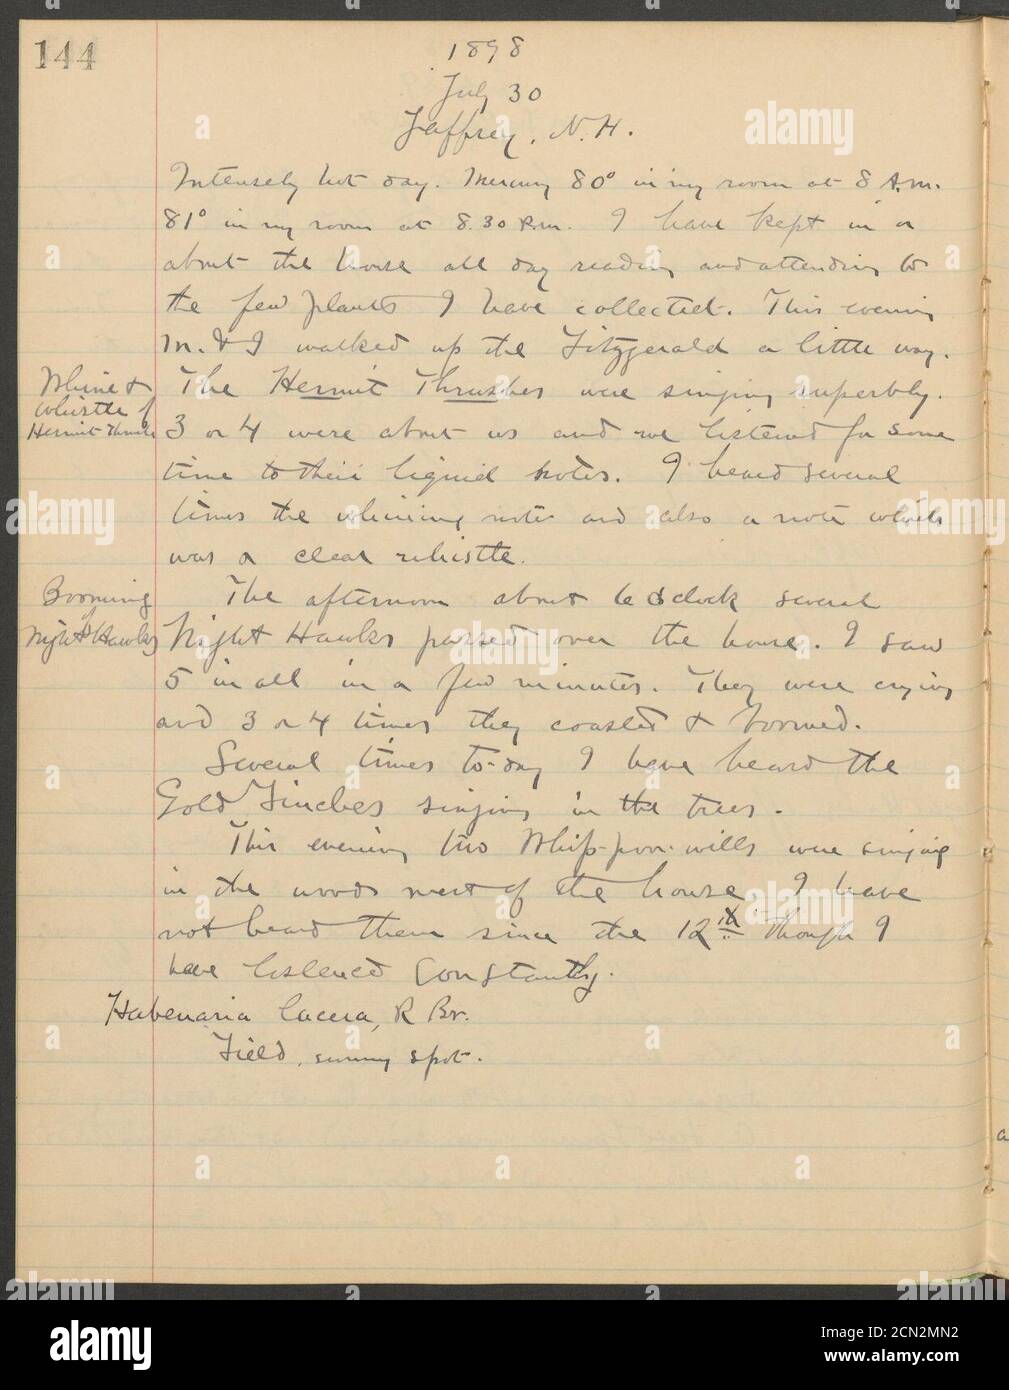 144
1898
July 30
Jaffrey, N.H.
Intensely hot day. Mercury 80° in my room at 8 A.M.
81° in my room at 8.30 P.M. I have kept in or
about the house all day reading and attending to
the few plants I have collected. This evening
M. & I walked up the Fitzgerald a little way.
Whine &
whistle of
Hermit Thrush
The Hermit Thrushes were singing superbly.
3 or 4 were about us and we listened for some
time to their liquid notes. I heard several
times the whining note and also a note which
was a clear whistle.
Booming
of
Night Hawks
The afternoon about 6 o'clock several
Night Hawks passed over the house. I saw
5 in all in a few minutes. They were crying
and 3 or 4 times they coasted & boomed.
Several times to-day I have heard the
Gold Finches singing in the trees.
This evening two Whip-poor-wills were singing
in the woods west of the house. I have
not heard them since the 12th though I
have listened constantly.
Habenaria lacera, R Br.
Field, sunny spot.
alamy
Image ID: 2CN2MN2
www.alamy.com